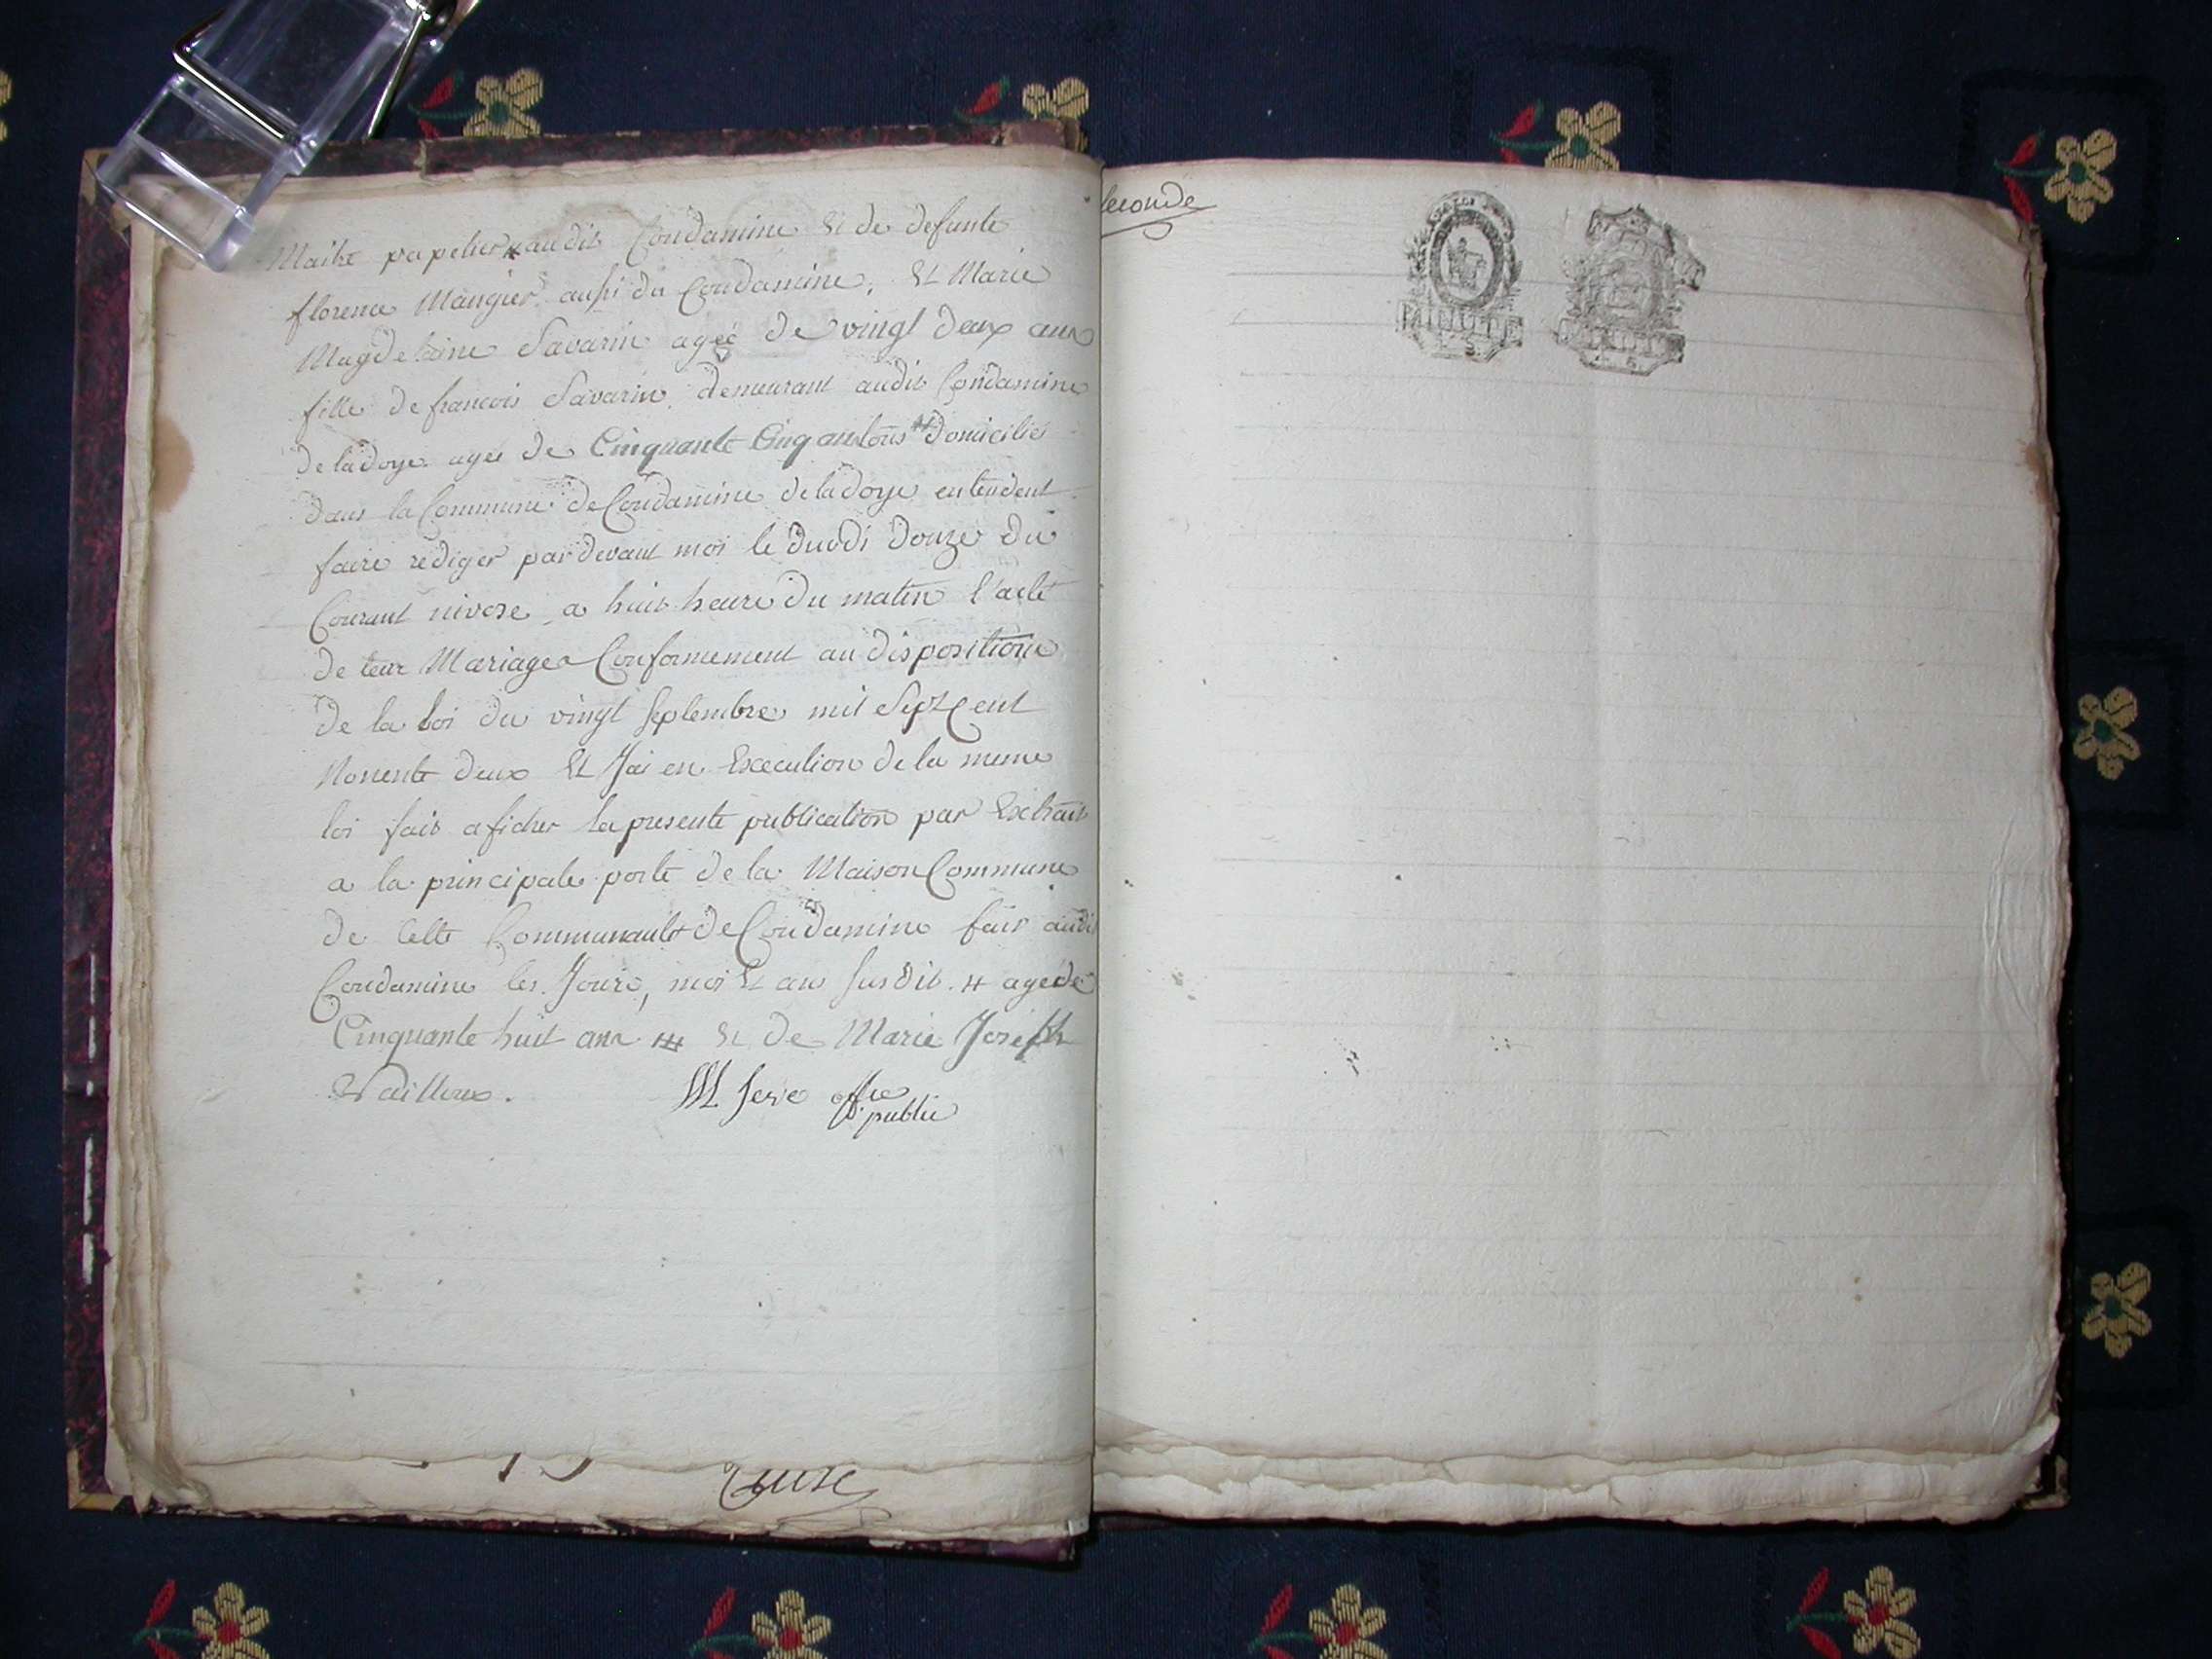 Maitre papetier # audit Condamine Et de defunte
florence Maugier aussi du Condamine, Et Marie
Magdelaine Savarin agéé de vingt deux ans
fille de francois Savarin demeurant audit Condamine
deladoye agée de Cinquante Cinq ans tous ## domiciliés
dans la Commune de Condamine deladoye entendent
faire rediger pardevant moi le duodi douze du
Courant nivose a huit heure du matin l'acte
de leur Mariage Conformement au disposition
de la Loi du vingt septembre mil Sept Cent
Nonente deux Et J'ai en Execution de la meme
loi fait aficher la presente publication par Extrait
a la principale porte de la Maison Commune
de Cette Communauté de Condamine fait audit
Condamine les Jours, moi Et an susdit. # agé de
Cinquante huit ans ## Et de Marie Joseph
Vailloux.
public
seconde
MINUTE